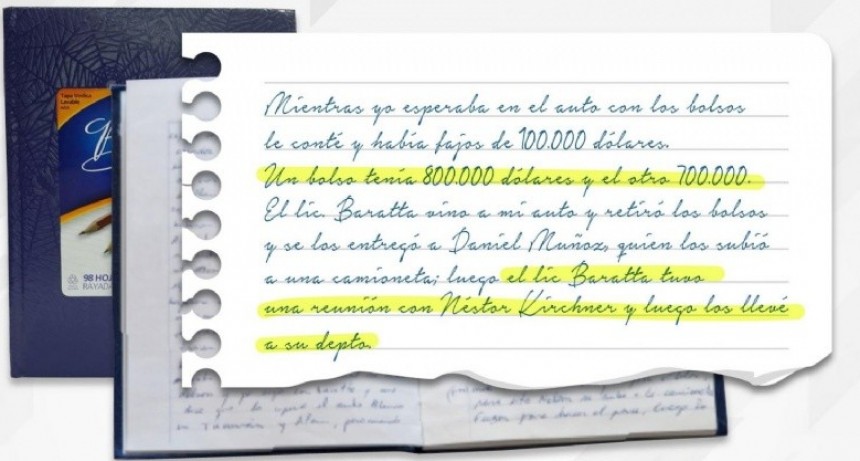 Tapa Vinílica
Lavable
98 HOJ
RAYAD
Mientras yo esperaba en el auto con los bolsos
le conté y había fajos de 100.000 dólares.
Un bolso tenía 800.000 dólares y el otro 700.000.
El lic. Baratta vino a mi auto y retiró los bolsos
y se los entregó a Daniel Muñoz, quien los subió
a una camioneta; luego el lic Baratta tuvo
una reunión con Néstor Kirchner y luego los llevé
a su depto.